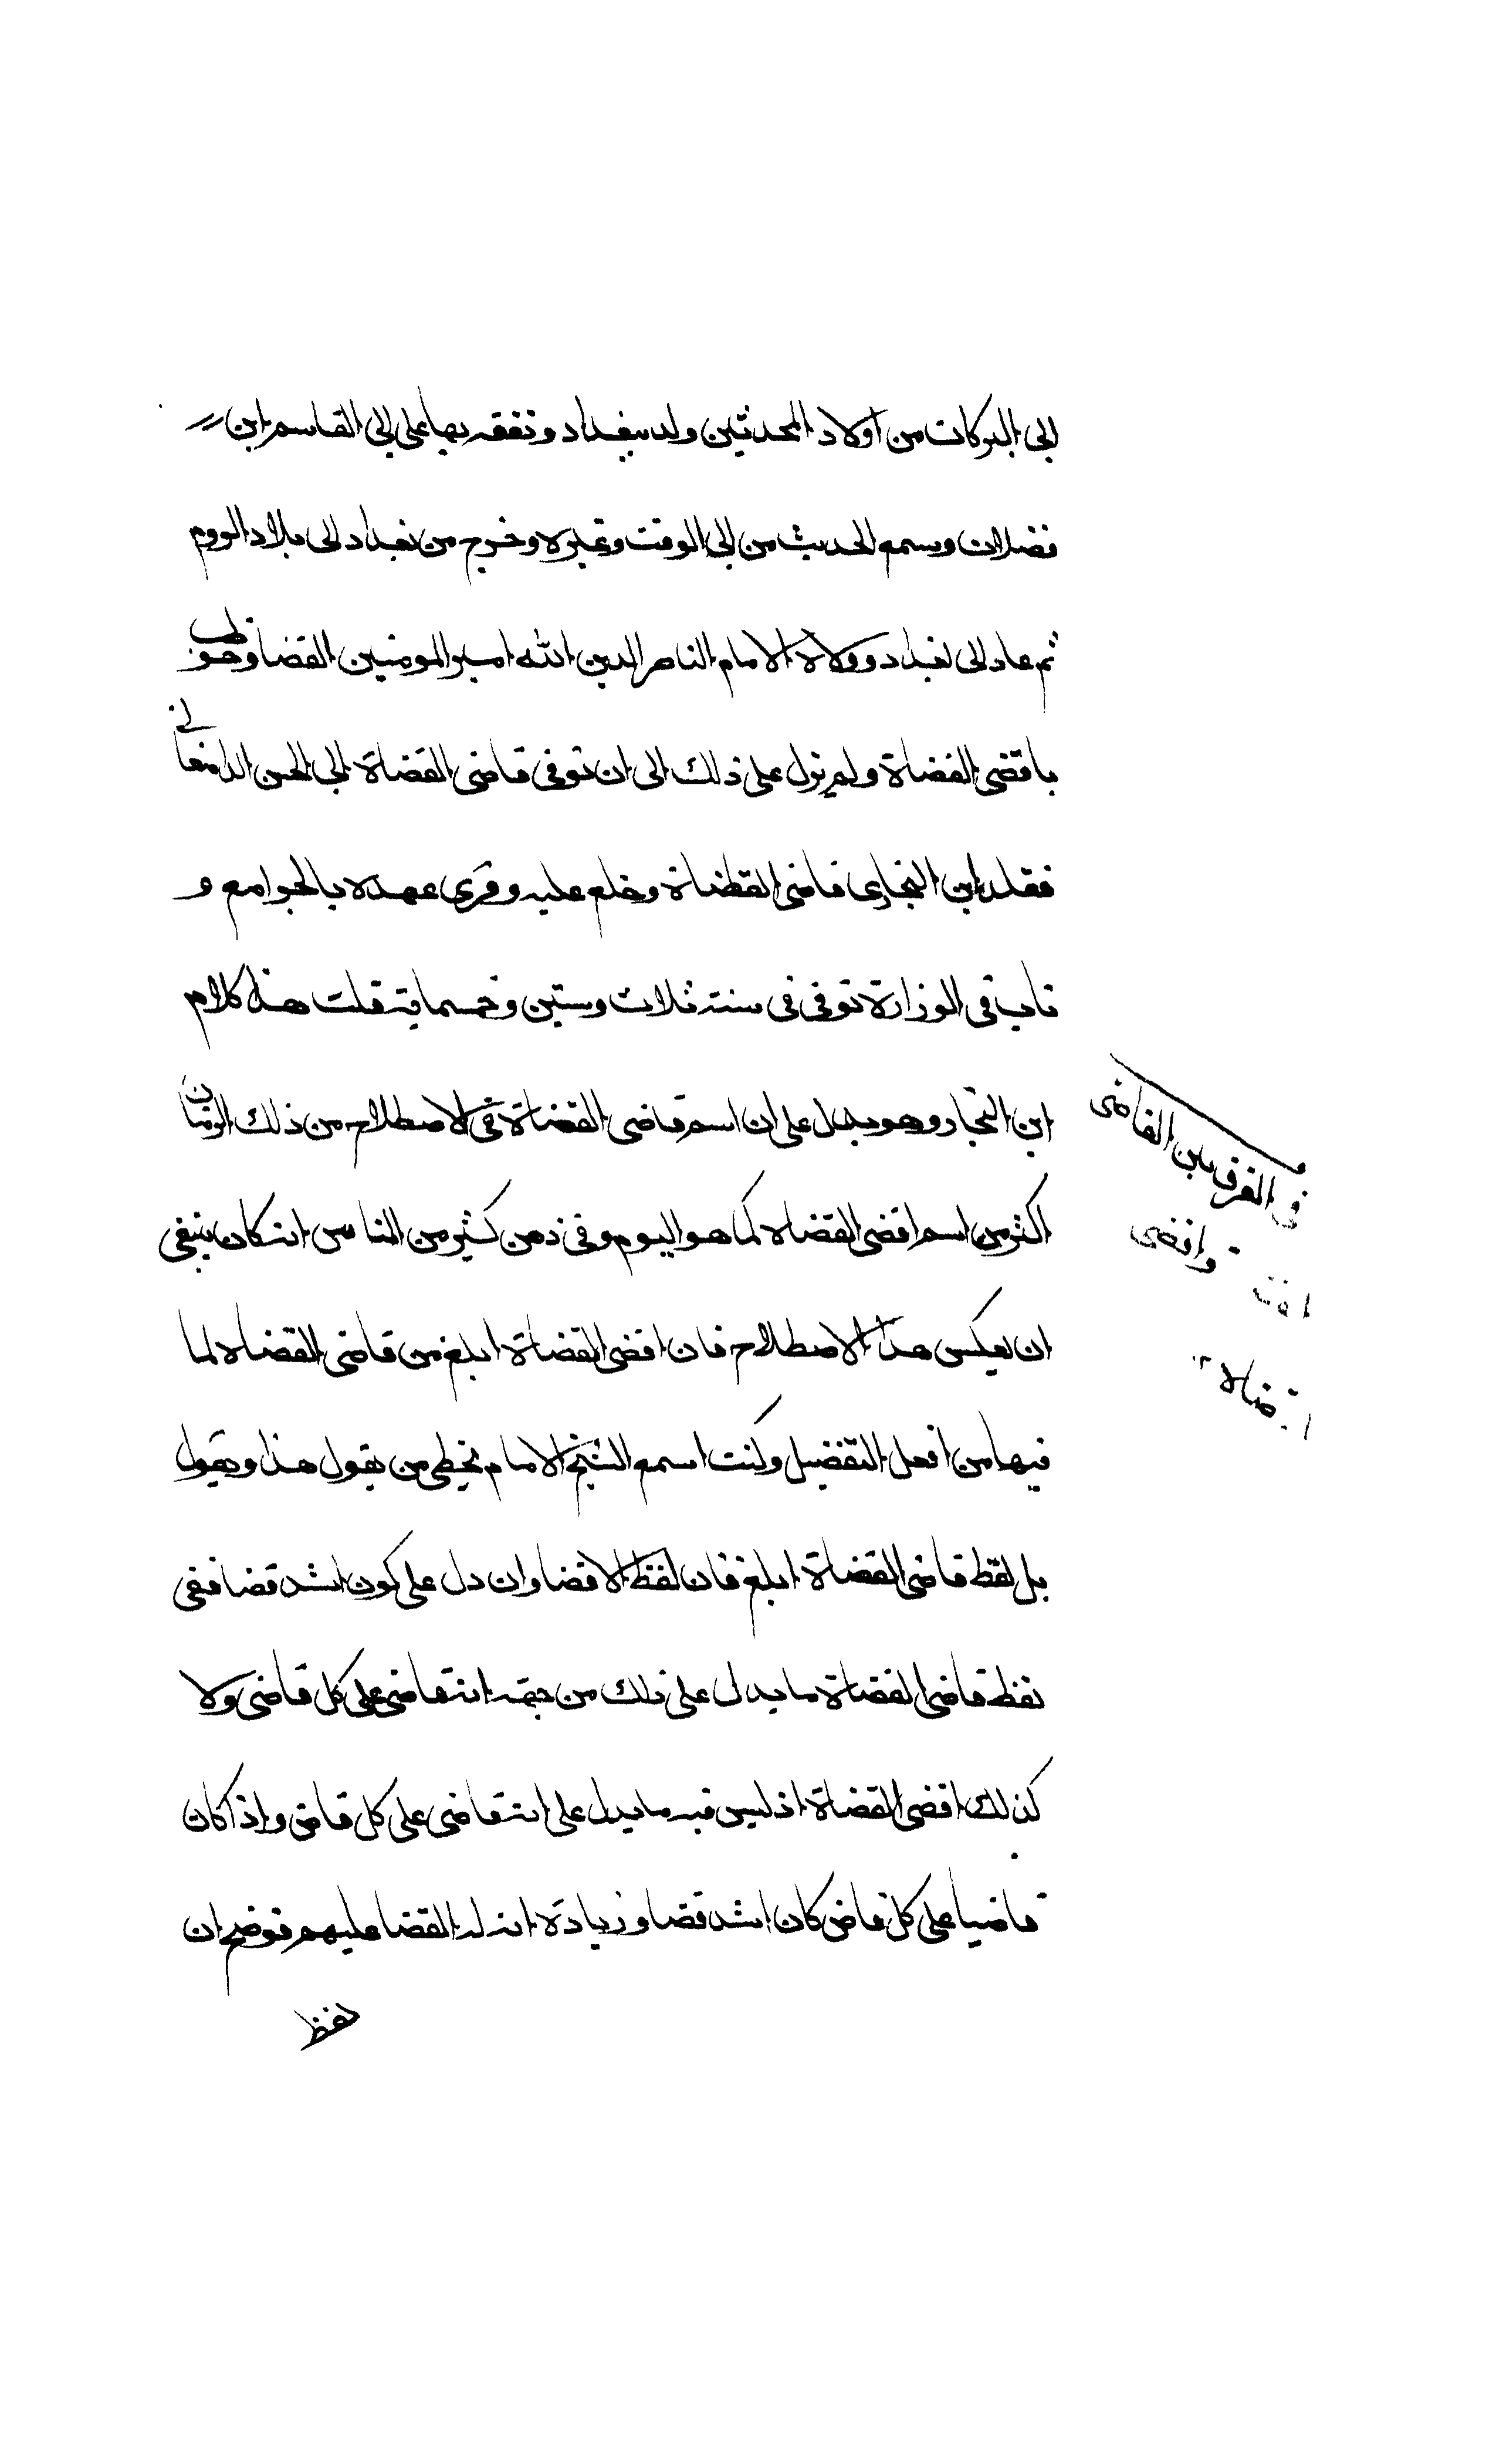 ابى البركات من اولاد المحدثين ولد ببغداد وتفقه بها على ابى القاسم ابن
فضلان وسمع الحديث من ابى الوقت وغيره وخرج من بغداد الى بلاد الروم
ثم عاد الى بغداد وولاه الامام الناصر لدين الله امير المومنين القضا وخوطب
باقضى القضاة ولم نزل على ذلك الى ان توفى قاضى القضاة ابى الحسن الدامغانى
فقلد ابن البخارى قاضى القضاة وخلع عليه وقرى عهده بالجوامع و
ناب فى الوزارة توفى فى سنة ثلاث وستين وخمسماية قلت هذا كلام
ابن النجار وهو يدل على ان اسم قاضى القضاة فى الاصطلاح من ذلك الزمان
اكثر من اسم اقضى القضاه كما هو اليوم وفى ذهن كثير من الناس انه كان ينبغى
ان يعكس هذا الاصطلاح فان اقضى القضاة ابلغ من قاضى القضاه لما
فيها من افعل التفضيل وكنت اسمع الشيخ الامام يخطى من يقول هذا ويقول
بل لفظ قاضى القضاة ابلغ فان لفظ الاقضا وان دل على كون اشد قضا ففى
لفظ قاضى القضاة ما يدل على ذلك من جهة انه قاضى على كل قاضى ولا
كذلك اقضى القضاة اذ ليس فيه ما يدل على انه قاضى على كل قاض واذا كان
قاضيا على كل قاض كان اشد قضا وزيادة انه له القضا عليهم فوضح ان
لفظ
فى الفرق بين القاضى
واقضى
القضاه